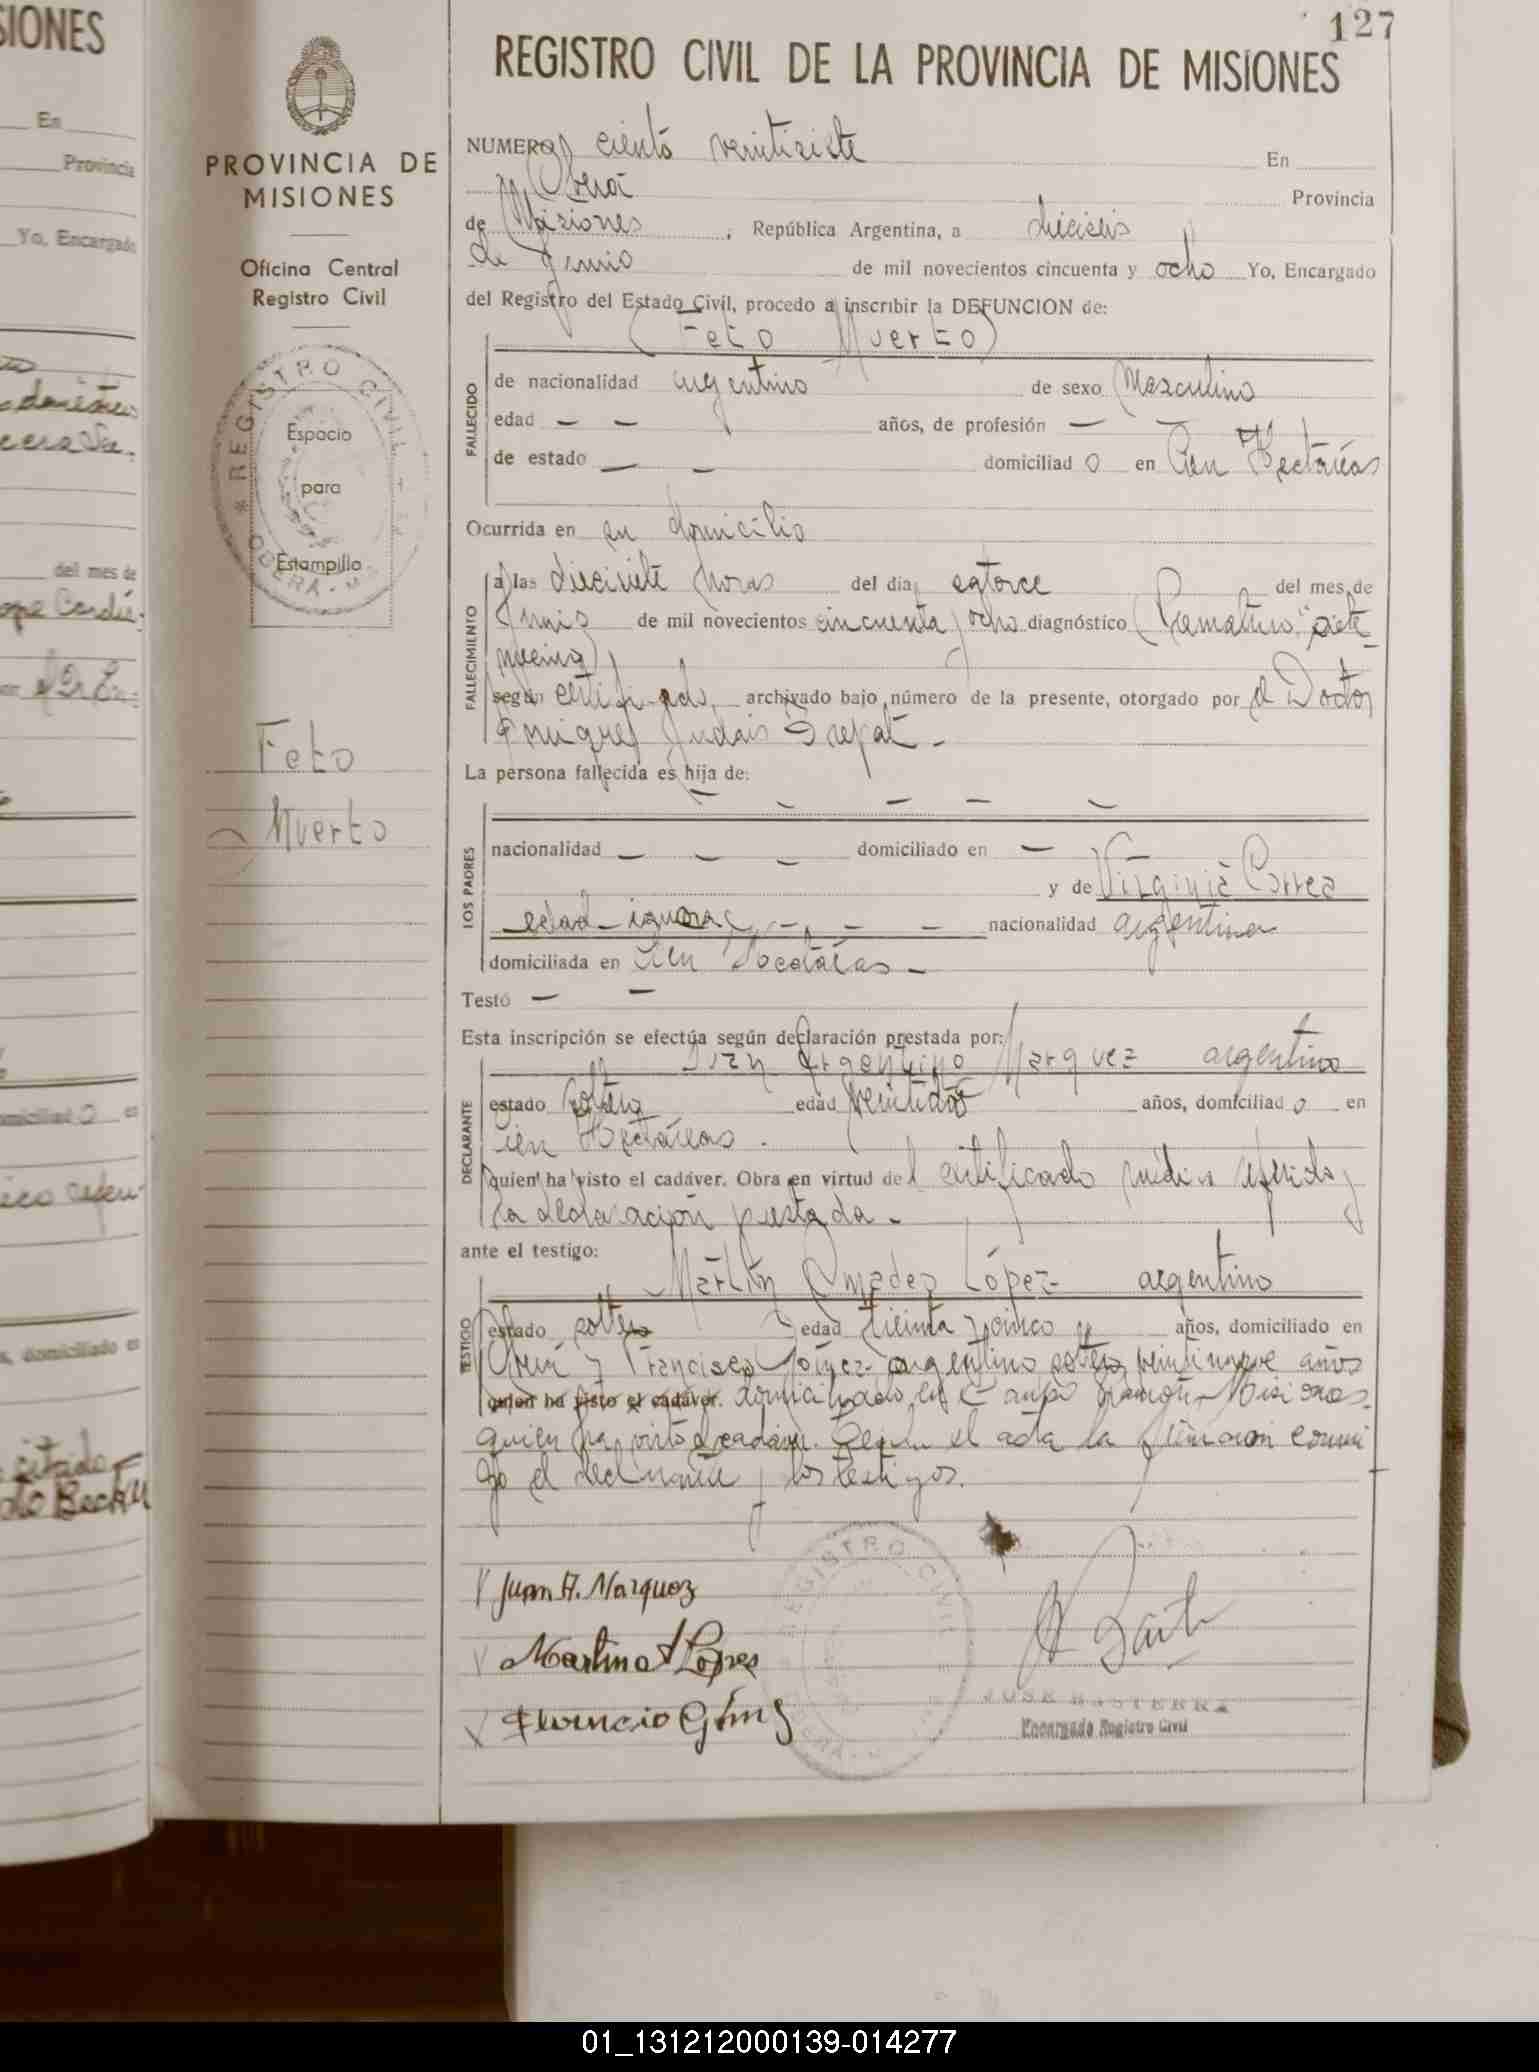 SIONES
En
Provincia
Yo, Encargado
del mes de
domiciliad o en
, domiciliado en
citado
Becker
PROVINCIA DE
MISIONES
Oficina Central
Registro Civil
* REGISTRO CIVIL *
OBERA
Espacio
para
Estampilla
Feto
Muerto
127
REGISTRO CIVIL DE LA PROVINCIA DE MISIONES
NUMERO ciento veintisiete En
Oberá Provincia
de Misiones, República Argentina, a dieciseis
de Junio de mil novecientos cincuenta y ocho Yo, Encargado
del Registro del Estado Civil, procedo a inscribir la DEFUNCION de:
(Feto Muerto)
FALLECIDO
de nacionalidad argentino de sexo Masculino
edad — — años, de profesión — —
de estado — — domiciliad o en Cien Hectáreas
Ocurrida en su domicilio
FALLECIMIENTO
a las diecisiete horas del dia catorce del mes de
Junio de mil novecientos cincuenta y ocho diagnóstico (Prematuro, siete
según certificado, archivado bajo número de la presente, otorgado por el Doctor
Enrique
La persona fallecida es hija de:
— — — — —
LOS PADRES
nacionalidad — — — domiciliado en —
y de Virginia Correa
edad ignora — — — nacionalidad argentina
domiciliada en Cien Hectáreas —
Testó — —
Esta inscripción se efectúa según declaración prestada por:
Juan Argentino Marquez argentino
DECLARANTE
estado soltero edad veintidos años, domiciliad o en
Cien Hectáreas.
quien ha visto el cadáver. Obra en virtud del certificado médico referido y
la declaración prestada —
ante el testigo:
Martín Amadeo López argentino
TESTIGO
estado soltero edad treinta y cinco años, domiciliado en
Oberá y Francisco Gómez argentino soltero veintinueve años
quien ha visto el cadáver. domiciliado en Campo Ramón Misiones
quien ha visto el cadáver. el acta la firmaron conmi
go el declarante y los testigos.
Juan A. Marquez
Martino A Lopes
Florencio Gómez
REGISTRO CIVIL
JOSE BASTERRA
Encargado Registro Civil
01_131212000139-014277